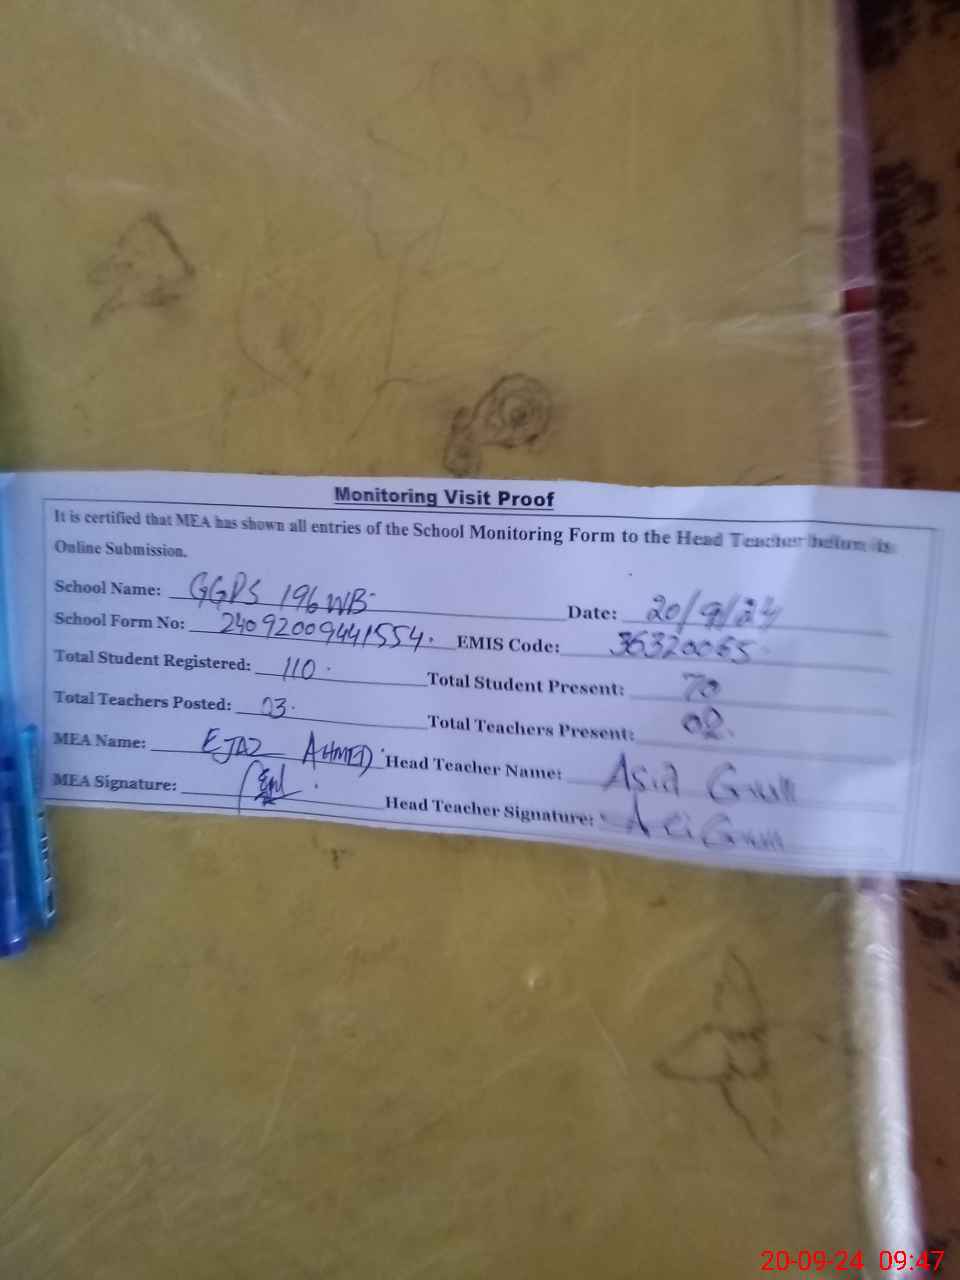 Monitoring Visit Proof
It is certified that MEA has shown all entries of the School Monitoring Form to the Head Teacher before its
Online Submission.
School Name: GGPS 196 WB Date: 20/9/24
School Form No: 24092009441554. EMIS Code: 36320065
Total Student Registered: 110. Total Student Present: 70
Total Teachers Posted: 03. Total Teachers Present: 02.
MEA Name: EJAZ AHMED Head Teacher Name: Asia Gull
MEA Signature: Head Teacher Signature:
20-09-24 09:47